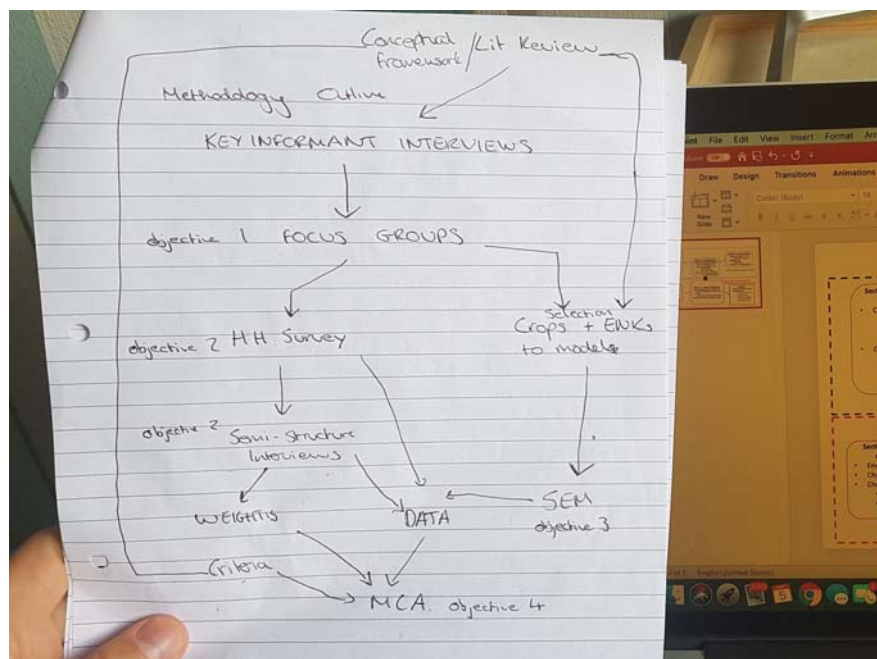 Conceptual / Lit Review
framework
Methodology Outline
KEY INFORMANT INTERVIEWS
objective 1 FOCUS GROUPS
Selection
Crops +
to models
objective 2 HH Survey
objective 2 Semi-structure
Interviews
WEIGHTS
DATA
SEM
objective 3
Criteria
MCA. objective 4
File Edit View Insert Format
Draw Design Transitions Animations
New
Slide
Calibri (Body)
English (United States)